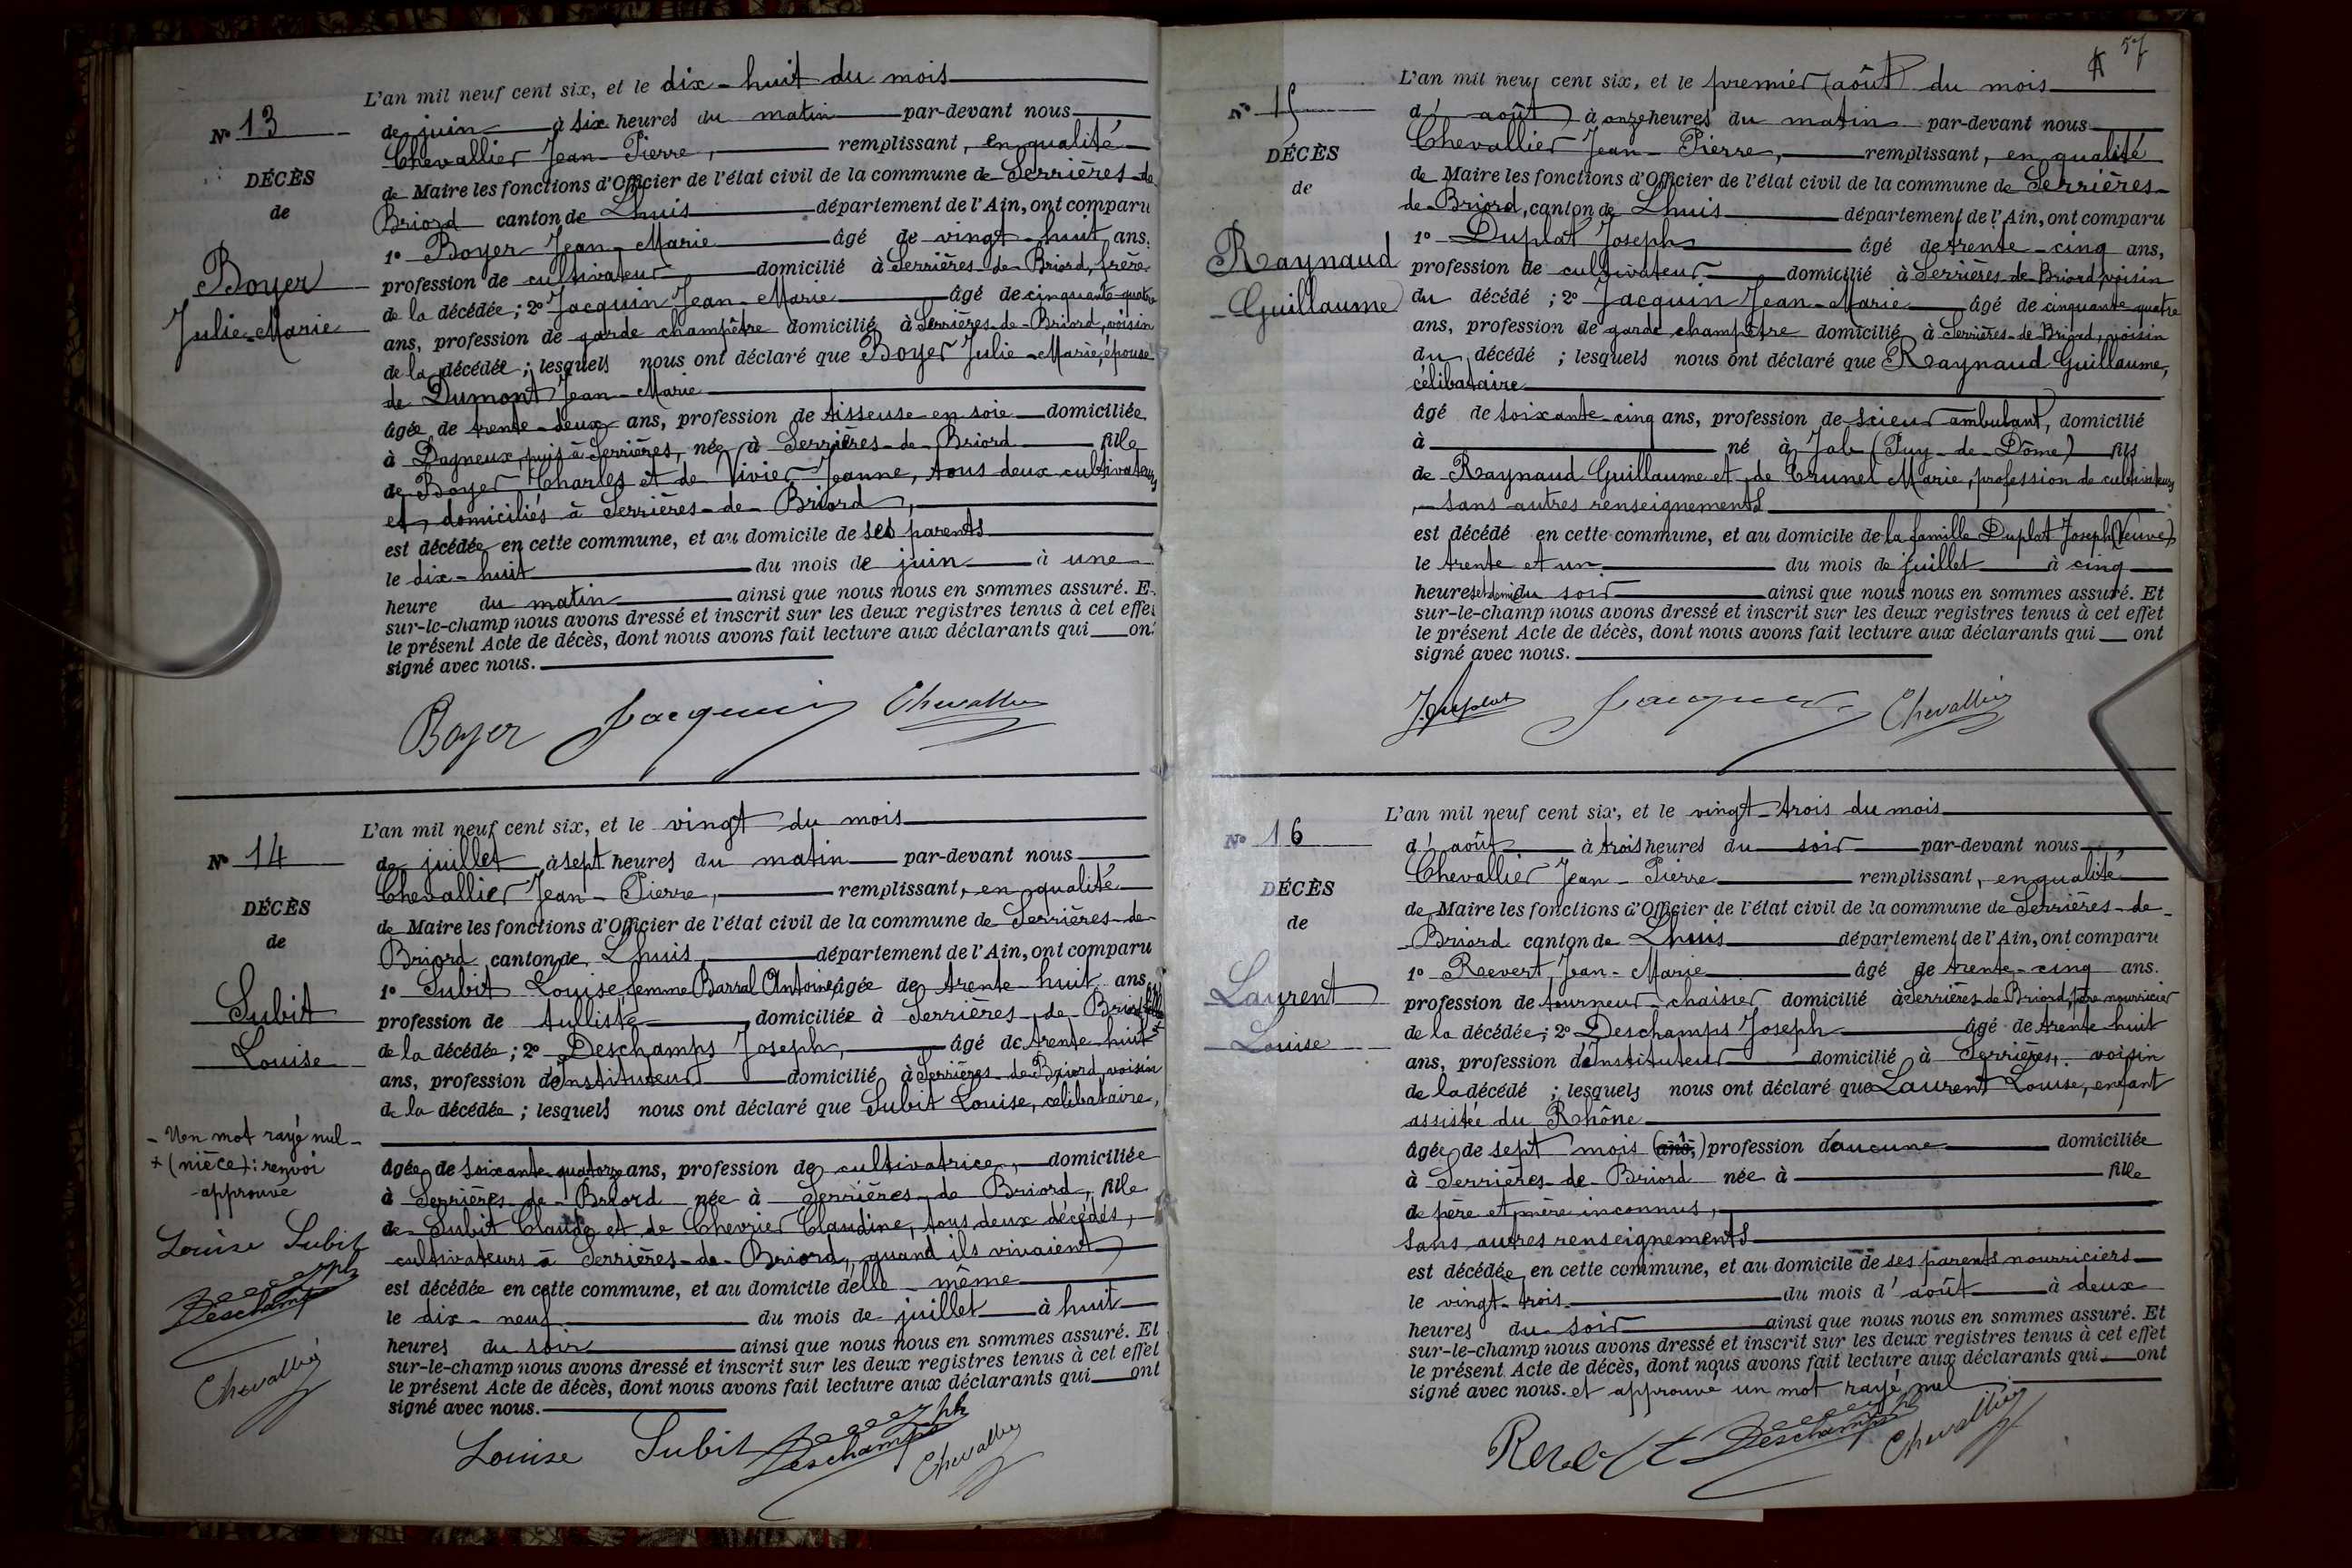 L'an mil neuf cent six, et le dix-huit du mois
N° 13
de juin à six heures du matin par-devant nous
Chevallier Jean-Pierre, remplissant, en qualité
DÉCÈS
de Maire les fonctions d'Officier de l'état civil de la commune de Serrières-de-
de
Briord canton de Lhuis département de l'Ain, ont comparu
1° Boyer Jean-Marie âgé de vingt-huit ans,
Boyer
profession de cultivateur domicilié à Serrières-de-Briord, frère
Julie-Marie
de la décédée; 2° Jacquin Jean-Marie âgé de cinquante-quatre
ans, profession de garde champêtre domicilié à Serrières-de-Briord, voisin
de la décédée; lesquels nous ont déclaré que Boyer Julie-Marie, épouse
de Dumont Jean-Marie
âgée de trente-deux ans, profession de tisseuse en soie domiciliée
à Dagneux, puis à Serrières, née à Serrières-de-Briord fille
de Boyer Charles et de Vivier Jeanne, tous deux cultivateurs
et domiciliés à Serrières-de-Briord,
est décédée en cette commune, et au domicile de ses parents
le dix-huit du mois de juin à une
heure du matin ainsi que nous nous en sommes assuré. E
sur-le-champ nous avons dressé et inscrit sur les deux registres tenus à cet effet
le présent Acte de décès, dont nous avons fait lecture aux déclarants qui ont
signé avec nous.
Boyer Jacquin Chevallier
L'an mil neuf cent six, et le vingt du mois
N° 14
de juillet à sept heures du matin par-devant nous
Chevallier Jean-Pierre, remplissant, en qualité
DÉCÈS
de Maire les fonctions d'Officier de l'état civil de la commune de Serrières-de-
de
Briord canton de Lhuis, département de l'Ain, ont comparu
1° Subit Louise femme Barral Antoine, âgée de trente-huit ans,
Subit
profession de tulliste domiciliée à Serrières-de-Briord
Louise
de la décédée; 2° Deschamps Joseph, âgé de trente-huit
ans, profession d'Instituteur domicilié à Serrières-de-Briord, voisin
de la décédée; lesquels nous ont déclaré que Subit Louise, célibataire,
- Un mot rayé nul -
+ (nièce): renvoi
approuvé
âgée de soixante quatorze ans, profession de cultivatrice, domiciliée
à Serrières-de-Briord née à Serrières-de-Briord, fille
de Subit Claude et de Chevrier Claudine, tous deux décédés,
Louise Subit
cultivateurs à Serrières-de-Briord, quand ils vivaient
Deschamps Joseph
est décédée en cette commune, et au domicile d'elle-même
le dix-neuf du mois de juillet à huit
Chevallier
heures du soir ainsi que nous nous en sommes assuré. Et
sur-le-champ nous avons dressé et inscrit sur les deux registres tenus à cet effet
le présent Acte de décès, dont nous avons fait lecture aux déclarants qui ont
signé avec nous.
Louise Subit Deschamps Joseph Chevallier
57
L'an mil neuf cent six, et le premier (août) du mois
N° 15
d'août à onze heures du matin par-devant nous
Chevallier Jean-Pierre, remplissant, en qualité
DÉCÈS
de Maire les fonctions d'Officier de l'état civil de la commune de Serrières-
de
de-Briord, canton de Lhuis département de l'Ain, ont comparu
1° Duplat Joseph âgé de trente-cinq ans,
Raynaud
profession de cultivateur domicilié à Serrières-de-Briord, voisin
Guillaume
du décédé; 2° Jacquin Jean-Marie âgé de cinquante-quatre
ans, profession de garde champêtre domicilié à Serrières-de-Briord, voisin
du décédé; lesquels nous ont déclaré que Raynaud Guillaume,
célibataire
âgé de soixante-cinq ans, profession de scieur ambulant, domicilié
à né à Job (Puy-de-Dôme) fils
de Raynaud Guillaume et de Crunel Marie, profession de cultivateurs
, sans autres renseignements
est décédé en cette commune, et au domicile de la famille Duplat Joseph (Veuve)
le trente et un du mois de juillet à cinq
heures et demie du soir ainsi que nous nous en sommes assuré. Et
sur-le-champ nous avons dressé et inscrit sur les deux registres tenus à cet effet
le présent Acte de décès, dont nous avons fait lecture aux déclarants qui ont
signé avec nous.
J. Duplat Jacquin Chevallier
L'an mil neuf cent six, et le vingt-trois du mois
N° 16
d'août à trois heures du soir par-devant nous,
Chevallier Jean-Pierre remplissant, en qualité
DÉCÈS
de Maire les fonctions d'Officier de l'état civil de la commune de Serrières-de-
de
Briord canton de Lhuis département de l'Ain, ont comparu
1° Revert Jean-Marie âgé de trente-cinq ans.
Laurent
profession de tourneur-chaisier domicilié à Serrières-de-Briord, père nourricier
Louise
de la décédée; 2° Deschamps Joseph âgé de trente huit
ans, profession d'Instituteur domicilié à Serrières, voisin
de la décédé; lesquels nous ont déclaré que Laurent Louise, enfant
assistée du Rhône
âgée de sept mois (ans,) profession d'aucune domiciliée
à Serrières-de-Briord née à fille
de père et mère inconnus,
sans autres renseignements
est décédée en cette commune, et au domicile de ses parents nourriciers
le vingt-trois du mois d'août à deux
heures du soir ainsi que nous nous en sommes assuré. Et
sur-le-champ nous avons dressé et inscrit sur les deux registres tenus à cet effet
le présent Acte de décès, dont nous avons fait lecture aux déclarants qui ont
signé avec nous. et approuvé un mot rayé nul
Revert Deschamps Joseph Chevallier